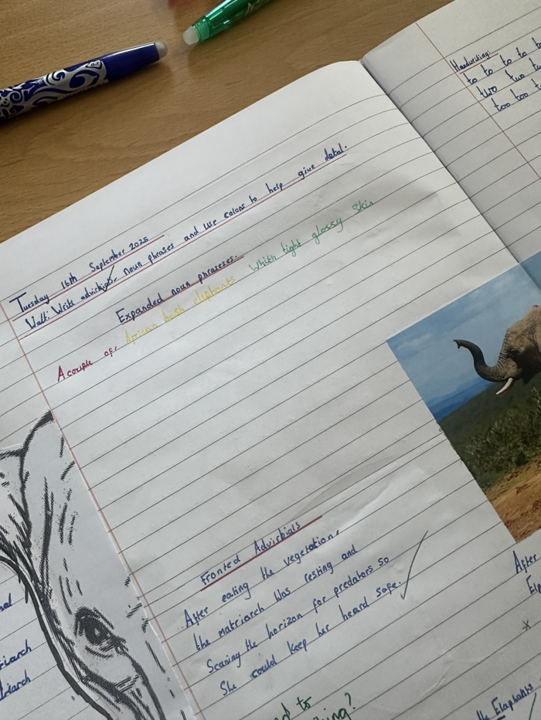 Handwriting:
to to to to t
two two tw
too too t
Tuesday 16th September 2025
Walt: Write advirbials noun phrases and use colons to help give detal.
Expanded noun phraseses:
A couple of: African bush elephants Whith light glossy skin
Fronted Advirbials
After eating the vegetation,
the matriarch was resting and
Scaring the horizon for predators so
She could keep her heard safe.
After
iarch